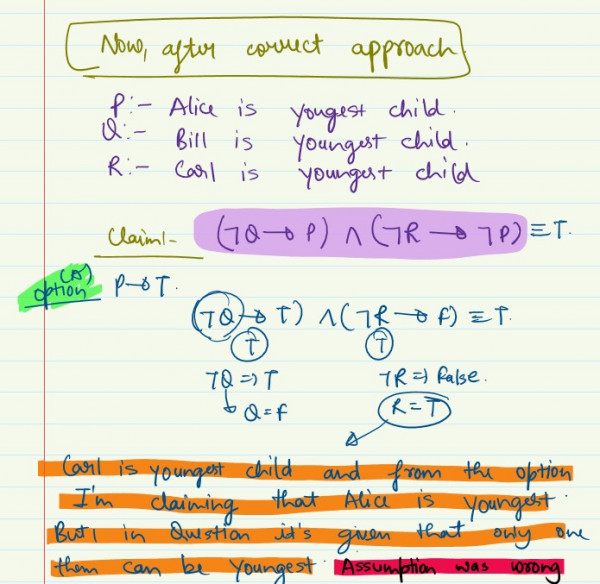 Now, after correct approach.
P:- Alice is yougest child.
Q:- Bill is youngest child.
R:- Carl is youngest child
Claim:- (¬Q → P) ∧ (¬R → ¬P) ≡ T.
option (A) P → T.
(¬Q → T) ∧ (¬R → f) ≡ T.
T T
¬Q => T ¬R => False.
Q = f R = T
Carl is youngest child and from the option
I'm claiming that Alice is youngest.
But, in Question it's given that only one
them can be youngest. Assumption was wrong